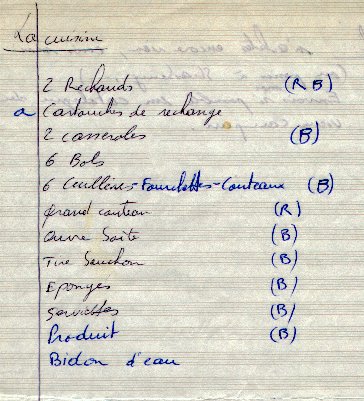 La cuisine
2 Rechauds (R B)
a Cartouches de rechange
2 casseroles (B)
6 Bols
6 Cuillères - Fourchettes - Couteaux (B)
grand couteau (R)
Ouvre Boite (B)
Tire Bouchon (B)
Eponges (B)
Serviettes (B)
Produit (B)
Bidon d'eau